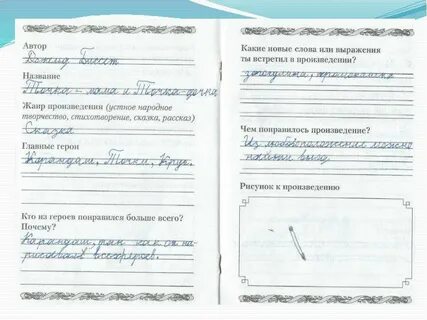 Автор
Дональд Биссет
Название
Точка - мама и Точка-дочка
Жанр произведения (устное народное
творчество, стихотворение, сказка, рассказ)
Сказка
Главные герои
Карандаш, Точки, Круг.
Кто из героев понравился больше всего?
Почему?
Карандаш, так как он на-
рисовал всех героев.
Какие новые слова или выражения
ты встретил в произведении?
Чем понравилось произведение?
Из любого положения можно
найти выход.
Рисунок к произведению